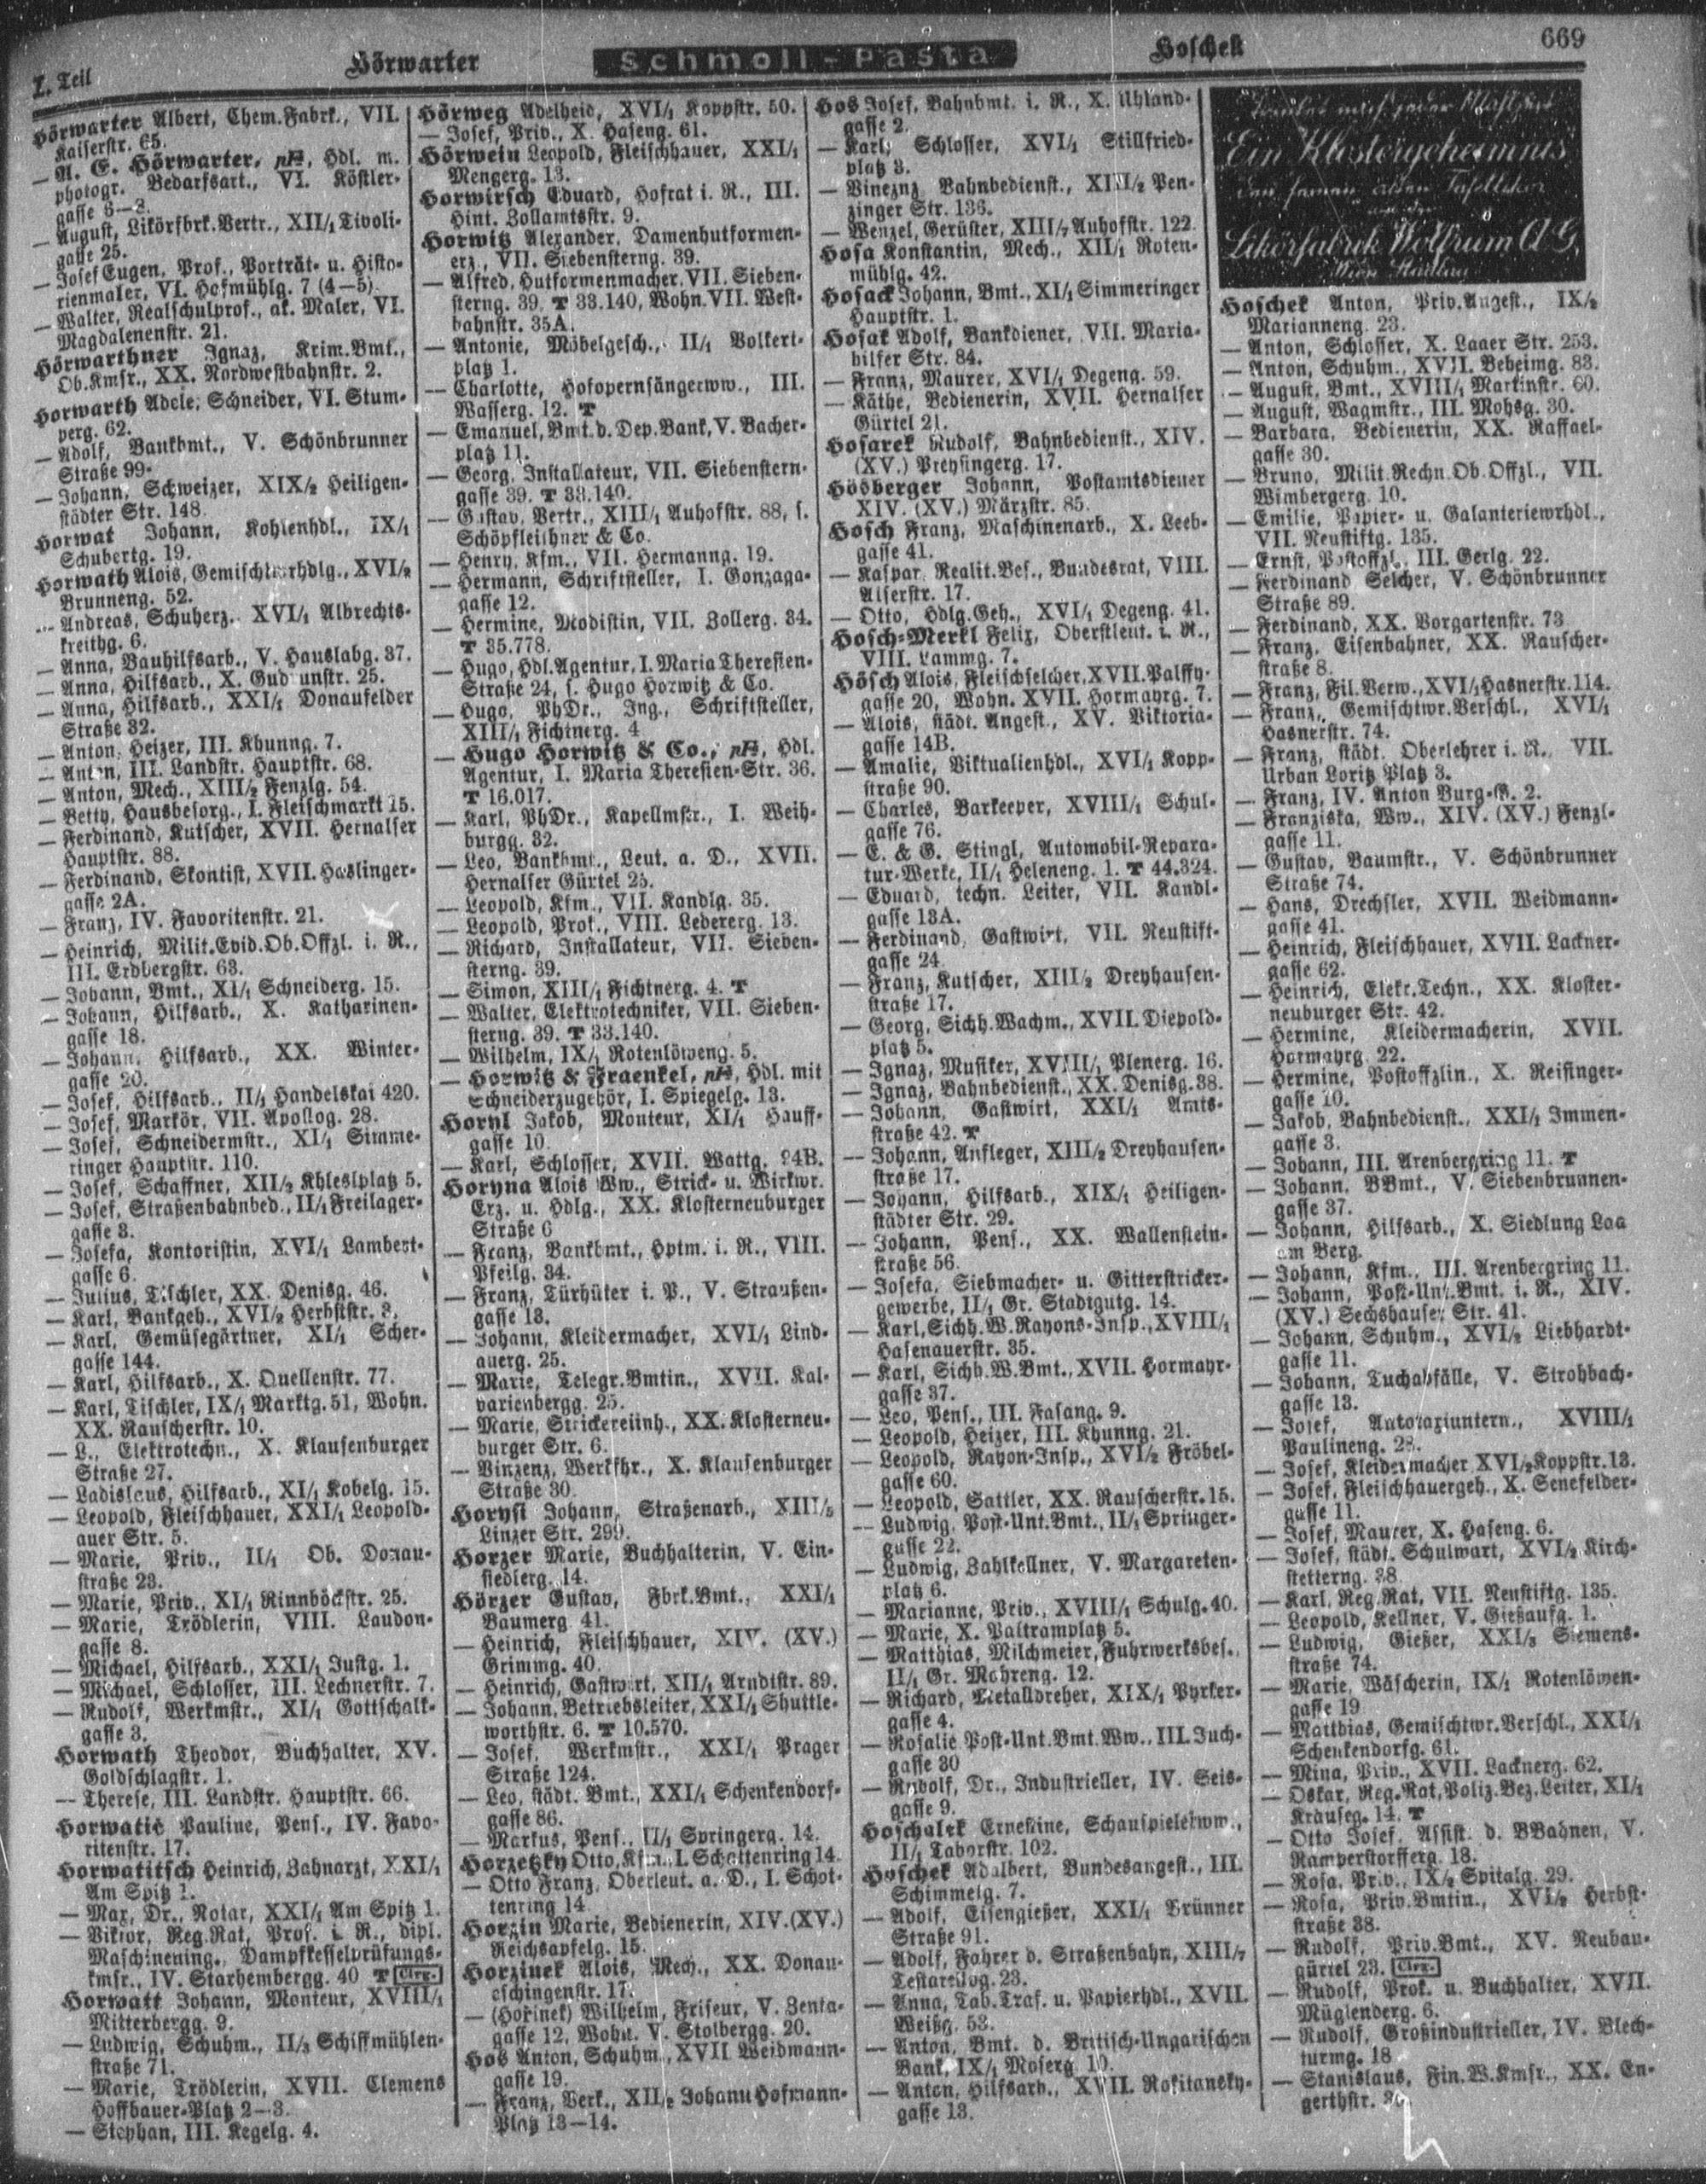 I. Teil
Hörwarter
Schmoll-Pasta
Hoschek
669
Hörwarter Albert, Chem.Fabrk., VII.
Kaiserstr. 65.
— A. E. Hörwarter, pH, Hdl. m.
photogr. Bedarfsart., VI. Köstler-
gasse 6—8.
— August, Likörfbrk.Vertr., XII/1 Tivoli-
gasse 25.
— Josef Eugen, Prof., Porträt- u. Histo-
rienmaler, VI. Hofmühlg. 7 (4—5).
— Walter, Realschulprof., ak. Maler, VI.
Magdalenenstr. 21.
Hörwarthner Ignaz, Krim.Bmt.,
Ob.Kmsr., XX. Nordwestbahnstr. 2.
Horwarth Adele, Schneider, VI. Stum-
perg. 62.
— Adolf, Bankbmt., V. Schönbrunner
Straße 99.
— Johann, Schweizer, XIX/2 Heiligen-
städter Str. 148.
Horwat Johann, Kohlenhdl., IX/1
Schubertg. 19.
Horwath Alois, Gemischtwrhdlg., XVI/2
Brunneng. 52.
— Andreas, Schuherz., XVI/1 Albrechts-
kreithg. 6.
— Anna, Bauhilfsarb., V. Hauslabg. 37.
— Anna, Hilfsarb., X. Gudrunstr. 25.
— Anna, Hilfsarb., XXI/1 Donaufelder
Straße 32.
— Anton, Heizer, III. Khunng. 7.
— Anton, III. Landstr. Hauptstr. 68.
— Anton, Mech., XIII/2 Fenzlg. 54.
— Betty, Hausbesorg., I. Fleischmarkt 15.
— Ferdinand, Kutscher, XVII. Hernalser
Hauptstr. 88.
— Ferdinand, Skontist, XVII. Haslinger-
gasse 2A.
— Franz, IV. Favoritenstr. 21.
— Heinrich, Milit.Evid.Ob.Offzl. i. R.,
III. Erdbergstr. 63.
— Johann, Bmt., XI/1 Schneiderg. 15.
— Johann, Hilfsarb., X. Katharinen-
gasse 18.
— Johann, Hilfsarb., XX. Winter-
gasse 20.
— Josef, Hilfsarb., II/1 Handelskai 420.
— Josef, Markör, VII. Apollog. 28.
— Josef, Schneidermstr., XI/1 Simme-
ringer Hauptstr. 110.
— Josef, Schaffner, XII/2 Khleslplatz 5.
— Josef, Straßenbahnbed., II/1 Freilager-
gasse 3.
— Josefa, Kontoristin, XVI/1 Lambert-
gasse 6.
— Julius, Tischler, XX. Denisg. 46.
— Karl, Bankgeh., XVI/2 Herbststr. 3.
— Karl, Gemüsegärtner, XI/1 Scher-
gasse 144.
— Karl, Hilfsarb., X. Quellenstr. 77.
— Karl, Tischler, IX/1 Marktg. 51, Wohn.
XX. Rauscherstr. 10.
— L., Elektrotechn., X. Klausenburger
Straße 27.
— Ladislaus, Hilfsarb., XI/1 Kobelg. 15.
— Leopold, Fleischhauer, XXI/1 Leopold-
auer Str. 5.
— Marie, Priv., II/1 Ob. Donau-
straße 23.
— Marie, Priv., XI/1 Rinnböckstr. 25.
— Marie, Trödlerin, VIII. Laudon-
gasse 8.
— Michael, Hilfsarb., XXI/1 Justg. 1.
— Michael, Schlosser, III. Lechnerstr. 7.
— Rudolf, Werkmstr., XI/1 Gottschalk-
gasse 3.
Horwath Theodor, Buchhalter, XV.
Goldschlagstr. 1.
— Therese, III. Landstr. Hauptstr. 66.
Horwatic Pauline, Pens., IV. Favo-
ritenstr. 17.
Horwatitsch Heinrich, Zahnarzt, XXI/1
Am Spitz 1.
— Max, Dr., Notar, XXI/1 Am Spitz 1.
— Viktor, Reg.Rat, Prof. i. R., dipl.
Maschinening., Dampfkesselprüfungs-
kmsr., IV. Starhembergg. 40 T Clrg.
Horwatt Johann, Monteur, XVIII/1
Mitterbergg. 9.
— Ludwig, Schuhm., II/3 Schiffmühlen-
straße 71.
— Marie, Trödlerin, XVII. Clemens
Hoffbauer-Platz 2—3.
— Stephan, III. Kegelg. 4.
Hörweg Adelheid, XVI/1 Koppstr. 50.
— Josef, Priv., X. Haseng. 61.
Hörwein Leopold, Fleischhauer, XXI/1
Mengerg. 13.
Horwirsch Eduard, Hofrat i. R., III.
Hint. Zollamtsstr. 9.
Horwitz Alexander, Damenhutformen-
erz., VII. Siebensterng. 39.
— Alfred, Hutformenmacher, VII. Sieben-
sterng. 39. T 33.140, Wohn. VII. West-
bahnstr. 35A.
— Antonie, Möbelgesch., II/1 Volkert-
platz 1.
— Charlotte, Hofopernsängersww., III.
Wasserg. 12. T
— Emanuel, Bmt. d. Dep.Bank, V. Bacher-
platz 11.
— Georg, Installateur, VII. Siebenstern-
gasse 39. T 33.140.
— Gustav, Vertr., XIII/1 Auhofstr. 88, s.
Schöpfleithner & Co.
— Henry, Kfm., VII. Hermanng. 19.
— Hermann, Schriftsteller, I. Gonzaga-
gasse 12.
— Hermine, Modistin, VII. Zollerg. 34.
T 35.778.
— Hugo, Hdl.Agentur, I. Maria Theresien-
Straße 24, s. Hugo Horwitz & Co.
— Hugo, PhDr., Ing., Schriftsteller,
XIII/1 Fichtnerg. 4
— Hugo Horwitz & Co., pH, Hdl.
Agentur, I. Maria Theresien-Str. 36.
T 16.017.
— Karl, PhDr., Kapellmstr., I. Weih-
burgg. 32.
— Leo, Bankbmt., Leut. a. D., XVII.
Hernalser Gürtel 25.
— Leopold, Kfm., VII. Kandlg. 35.
— Leopold, Prof., VIII. Ledererg. 13.
— Richard, Installateur, VII. Sieben-
sterng. 39.
— Simon, XIII/1 Fichtnerg. 4. T
— Walter, Elektrotechniker, VII. Sieben-
sterng. 39. T 33.140.
— Wilhelm, IX/1 Rotenlöweng. 5.
— Horwitz & Fraenkel, pH, Hdl. mit
Schneiderzugehör, I. Spiegelg. 13.
Horyl Jakob, Monteur, XI/1 Hauff-
gasse 10.
— Karl, Schlosser, XVII. Wattg. 94B.
Horyna Alois Ww., Strick- u. Wirkwr.
Erz. u. Hdlg., XX. Klosterneuburger
Straße 6
— Franz, Bankbmt., Hptm. i. R., VIII.
Pfeilg. 34.
— Franz, Türhüter i. P., V. Straußen-
gasse 13.
— Johann, Kleidermacher, XVI/1 Lind-
auerg. 25.
— Marie, Telegr.Bmtin., XVII. Kal-
varienbergg. 25.
— Marie, Strickereiinh., XX. Klosterneu-
burger Str. 6.
— Vinzenz, Werkfhr., X. Klausenburger
Straße 30.
Horysi Johann, Straßenarb., XIII/5
Linzer Str. 299.
Horzer Marie, Buchhalterin, V. Ein-
siedlerg. 14.
Hörzer Gustav, Fbrk.Bmt., XXI/1
Baumerg 41.
— Heinrich, Fleischhauer, XIV. (XV.)
Grimmg. 40.
— Heinrich, Gastwirt, XII/1 Arndtstr. 89.
— Johann, Betriebsleiter, XXI/1 Shuttle-
worthstr. 6. T 10.570.
— Josef, Werkmstr., XXI/1 Prager
Straße 124.
— Leo, städt. Bmt., XXI/1 Schenkendorf-
gasse 86.
— Markus, Pens., II/1 Springerg. 14.
Horzetzky Otto, Kfm., I. Schottenring 14.
— Otto Franz, Oberleut. a. D., I. Schot-
tenring 14
Horzin Marie, Bedienerin, XIV. (XV.)
Reichsapfelg. 15.
Horzinek Alois, Mech., XX. Donau-
eschingenstr. 17.
— (Hořinek) Wilhelm, Friseur, V. Zenta-
gasse 12, Wohn. V. Stolbergg. 20.
Hos Anton, Schuhm., XVII Weidmann-
gasse 19.
— Franz, Verk., XII/2 Johann Hofmann-
Platz 13—14.
Hos Josef, Bahnbmt. i. R., X. Uhland-
gasse 2.
— Karl, Schlosser, XVI/1 Stillfried-
platz 3.
— Vinzenz Bahnbedienst., XIII/2 Pen-
zinger Str. 136.
— Wenzel, Gerüster, XIII/7 Auhofstr. 122.
Hosa Konstantin, Mech., XII/1 Roten-
mühlg. 42.
Hosack Johann, Bmt., XI/1 Simmeringer
Hauptstr. 1.
Hosak Adolf, Bankdiener, VII. Maria-
hilfer Str. 84.
— Franz, Maurer, XVI/1 Degeng. 59.
— Käthe, Bedienerin, XVII. Hernalser
Gürtel 21.
Hosarek Rudolf, Bahnbedienst., XIV.
(XV.) Preysingerg. 17.
Hösberger Johann, Postamtsdiener
XIV. (XV.) Märzstr. 85.
Hosch Franz, Maschinenarb., X. Leeb-
gasse 41.
— Kaspar, Realit.Bes., Bundesrat, VIII.
Alserstr. 17.
— Otto, Hdlg.Geh., XVI/1 Degeng. 41.
Hosch-Merkl Felix, Oberstleut. i. R.,
VIII. Lammg. 7.
Hösch Alois, Fleischselcher, XVII. Palffy-
gasse 20, Wohn. XVII. Hormayrg. 7.
— Alois, städt. Angest., XV. Viktoria-
gasse 14B.
— Amalie, Viktualienhdl., XVI/1 Kopp-
straße 90.
— Charles, Barkeeper, XVIII/1 Schul-
gasse 76.
— E. & G. Stingl, Automobil-Repara-
tur-Werke, II/1 Heleneng. 1. T 44.324.
— Eduard, techn. Leiter, VII. Kandl-
gasse 13A.
— Ferdinand, Gastwirt, VII. Neustift-
gasse 24.
— Franz, Kutscher, XIII/2 Dreyhausen-
straße 17.
— Georg, Sichh.Wachm., XVII. Diepold-
platz 5.
— Ignaz, Musiker, XVIII/1 Plenerg. 16.
— Ignaz, Bahnbedienst., XX. Denisg. 38.
— Johann, Gastwirt, XXI/1 Amts-
straße 42. T
— Johann, Aufleger, XIII/2 Dreyhausen-
straße 17.
— Johann, Hilfsarb., XIX/1 Heiligen-
städter Str. 29.
— Johann, Pens., XX. Wallenstein-
straße 56.
— Josefa, Siebmacher- u. Gitterstricker-
gewerbe, II/1 Gr. Stadtgutg. 14.
— Karl, Sichh.W.Rayons-Insp., XVIII/1
Hasenauerstr. 35.
— Karl, Sichh.W.Bmt., XVII. Hormayr-
gasse 37.
— Leo, Pens., III. Fasang. 9.
— Leopold, Heizer, III. Khunng. 21.
— Leopold, Rayon-Insp., XVI/2 Fröbel-
gasse 60.
— Leopold, Sattler, XX. Rauscherstr. 15.
— Ludwig, Post-Unt.Bmt., II/1 Springer-
gasse 22.
— Ludwig, Zahlkellner, V. Margareten-
platz 6.
— Marianne, Priv., XVIII/1 Schulg. 40.
— Marie, X. Paltramplatz 5.
— Matthias, Milchmeier, Fuhrwerksbes.,
II/1 Gr. Mohreng. 12.
— Richard, Metalldreher, XIX/1 Pyrker-
gasse 4.
— Rosalie Post-Unt.Bmt.Ww., III. Juch-
gasse 30
— Rudolf, Dr., Industrieller, IV. Geis-
gasse 9.
Hoschalek Ernestine, Schauspielerww.,
II/1 Taborstr. 102.
Hoschek Adalbert, Bundesangest., III.
Schimmelg. 7.
— Adolf, Eisengießer, XXI/1 Brünner
Straße 91.
— Adolf, Fahrer d. Straßenbahn, XIII/7
23.
— Anna, Tab.Traf. u. Papierhdl., XVII.
Weißg. 53.
— Anton, Bmt. d. Britisch-Ungarischen
Bank, IX/1 Moserg. 10.
— Anton, Hilfsarb., XVII. Rokitansky-
gasse 13.
Ein Klostergeheimnis
Likörfabrik Wolfrum A.G.
Hoschek Anton, Priv.Angest., IX/2
Marianneng. 23.
— Anton, Schlosser, X. Laaer Str. 253.
— Anton, Schuhm., XVII. Beheimg. 83.
— August, Bmt., XVIII/1 Martinstr. 60.
— August, Wagmstr., III. Mohsg. 30.
— Barbara, Bedienerin, XX. Raffael-
gasse 30.
— Bruno, Milit.Rechn.Ob.Offzl., VII.
Wimbergerg. 10.
— Emilie, Papier- u. Galanteriewrhdl.,
VII. Neustiftg. 135.
— Ernst, Postoffzl., III. Gerlg. 22.
— Ferdinand Selcher, V. Schönbrunner
Straße 89.
— Ferdinand, XX. Vorgartenstr. 73
— Franz, Eisenbahner, XX. Rauscher-
straße 8.
— Franz, Fil.Verw., XVI/1 Hasnerstr. 114.
— Franz, Gemischtwr.Verschl., XVI/1
Hasnerstr. 74.
— Franz, städt. Oberlehrer i. R., VII.
Urban Loritz Platz 3.
— Franz, IV. Anton Burg-G. 2.
— Franziska, Ww., XIV. (XV.) Fenzl-
gasse 11.
— Gustav, Baumstr., V. Schönbrunner
Straße 74.
— Hans, Drechsler, XVII. Weidmann-
gasse 41.
— Heinrich, Fleischhauer, XVII. Lackner-
gasse 62.
— Heinrich, Elektr.Techn., XX. Kloster-
neuburger Str. 42.
— Hermine, Kleidermacherin, XVII.
Hormayrg. 22.
— Hermine, Postoffzlin., X. Reisinger-
gasse 10.
— Jakob, Bahnbedienst., XXI/1 Immen-
gasse 3.
— Johann, III. Arenbergring 11. T
— Johann, BBmt., V. Siebenbrunnen-
gasse 37.
— Johann, Hilfsarb., X. Siedlung Laa
am Berg.
— Johann, Kfm., III. Arenbergring 11.
— Johann, Post-Unt.Bmt. i. R., XIV.
(XV.) Sechshauser Str. 41.
— Johann, Schuhm., XVI/2 Liebhardt-
gasse 11.
— Johann, Tuchabfälle, V. Strohbach-
gasse 13.
— Josef, Autotaxiuntern., XVIII/1
Paulineng. 28.
— Josef, Kleidermacher, XVI/2 Koppstr. 13.
— Josef, Fleischhauergeh., X. Senefelder-
gasse 11.
— Josef, Maurer, X. Haseng. 6.
— Josef, städt. Schulwart, XVI/2 Kirch-
stetterng. 38
— Karl, Reg.Rat, VII. Neustiftg. 135.
— Leopold, Kellner, V. Gießaufg. 1.
— Ludwig, Gießer, XXI/3 Siemens-
straße 74.
— Marie, Wäscherin, IX/1 Rotenlöwen-
gasse 19
— Matthias, Gemischtwr.Verschl., XXI/1
Schenkendorfg. 61.
— Mina, Priv., XVII. Lacknerg. 62.
— Oskar, Reg.Rat, Poliz.Bez.Leiter, XI/1
Krauseg. 14. T
— Otto Josef, Assist. d. BBahnen, V.
Ramperstorfferg. 18.
— Rosa, Priv., IX/2 Spitalg. 29.
— Rosa, Priv.Bmtin., XVI/2 Herbst-
straße 38.
— Rudolf, Priv.Bmt., XV. Neubau-
gürtel 23. Clrg.
— Rudolf, Prok. u. Buchhalter, XVII.
Müglenderg. 6.
— Rudolf, Großindustrieller, IV. Blech-
turmg. 18
— Stanislaus, Fin.W.Kmsr., XX. En-
gerthstr.